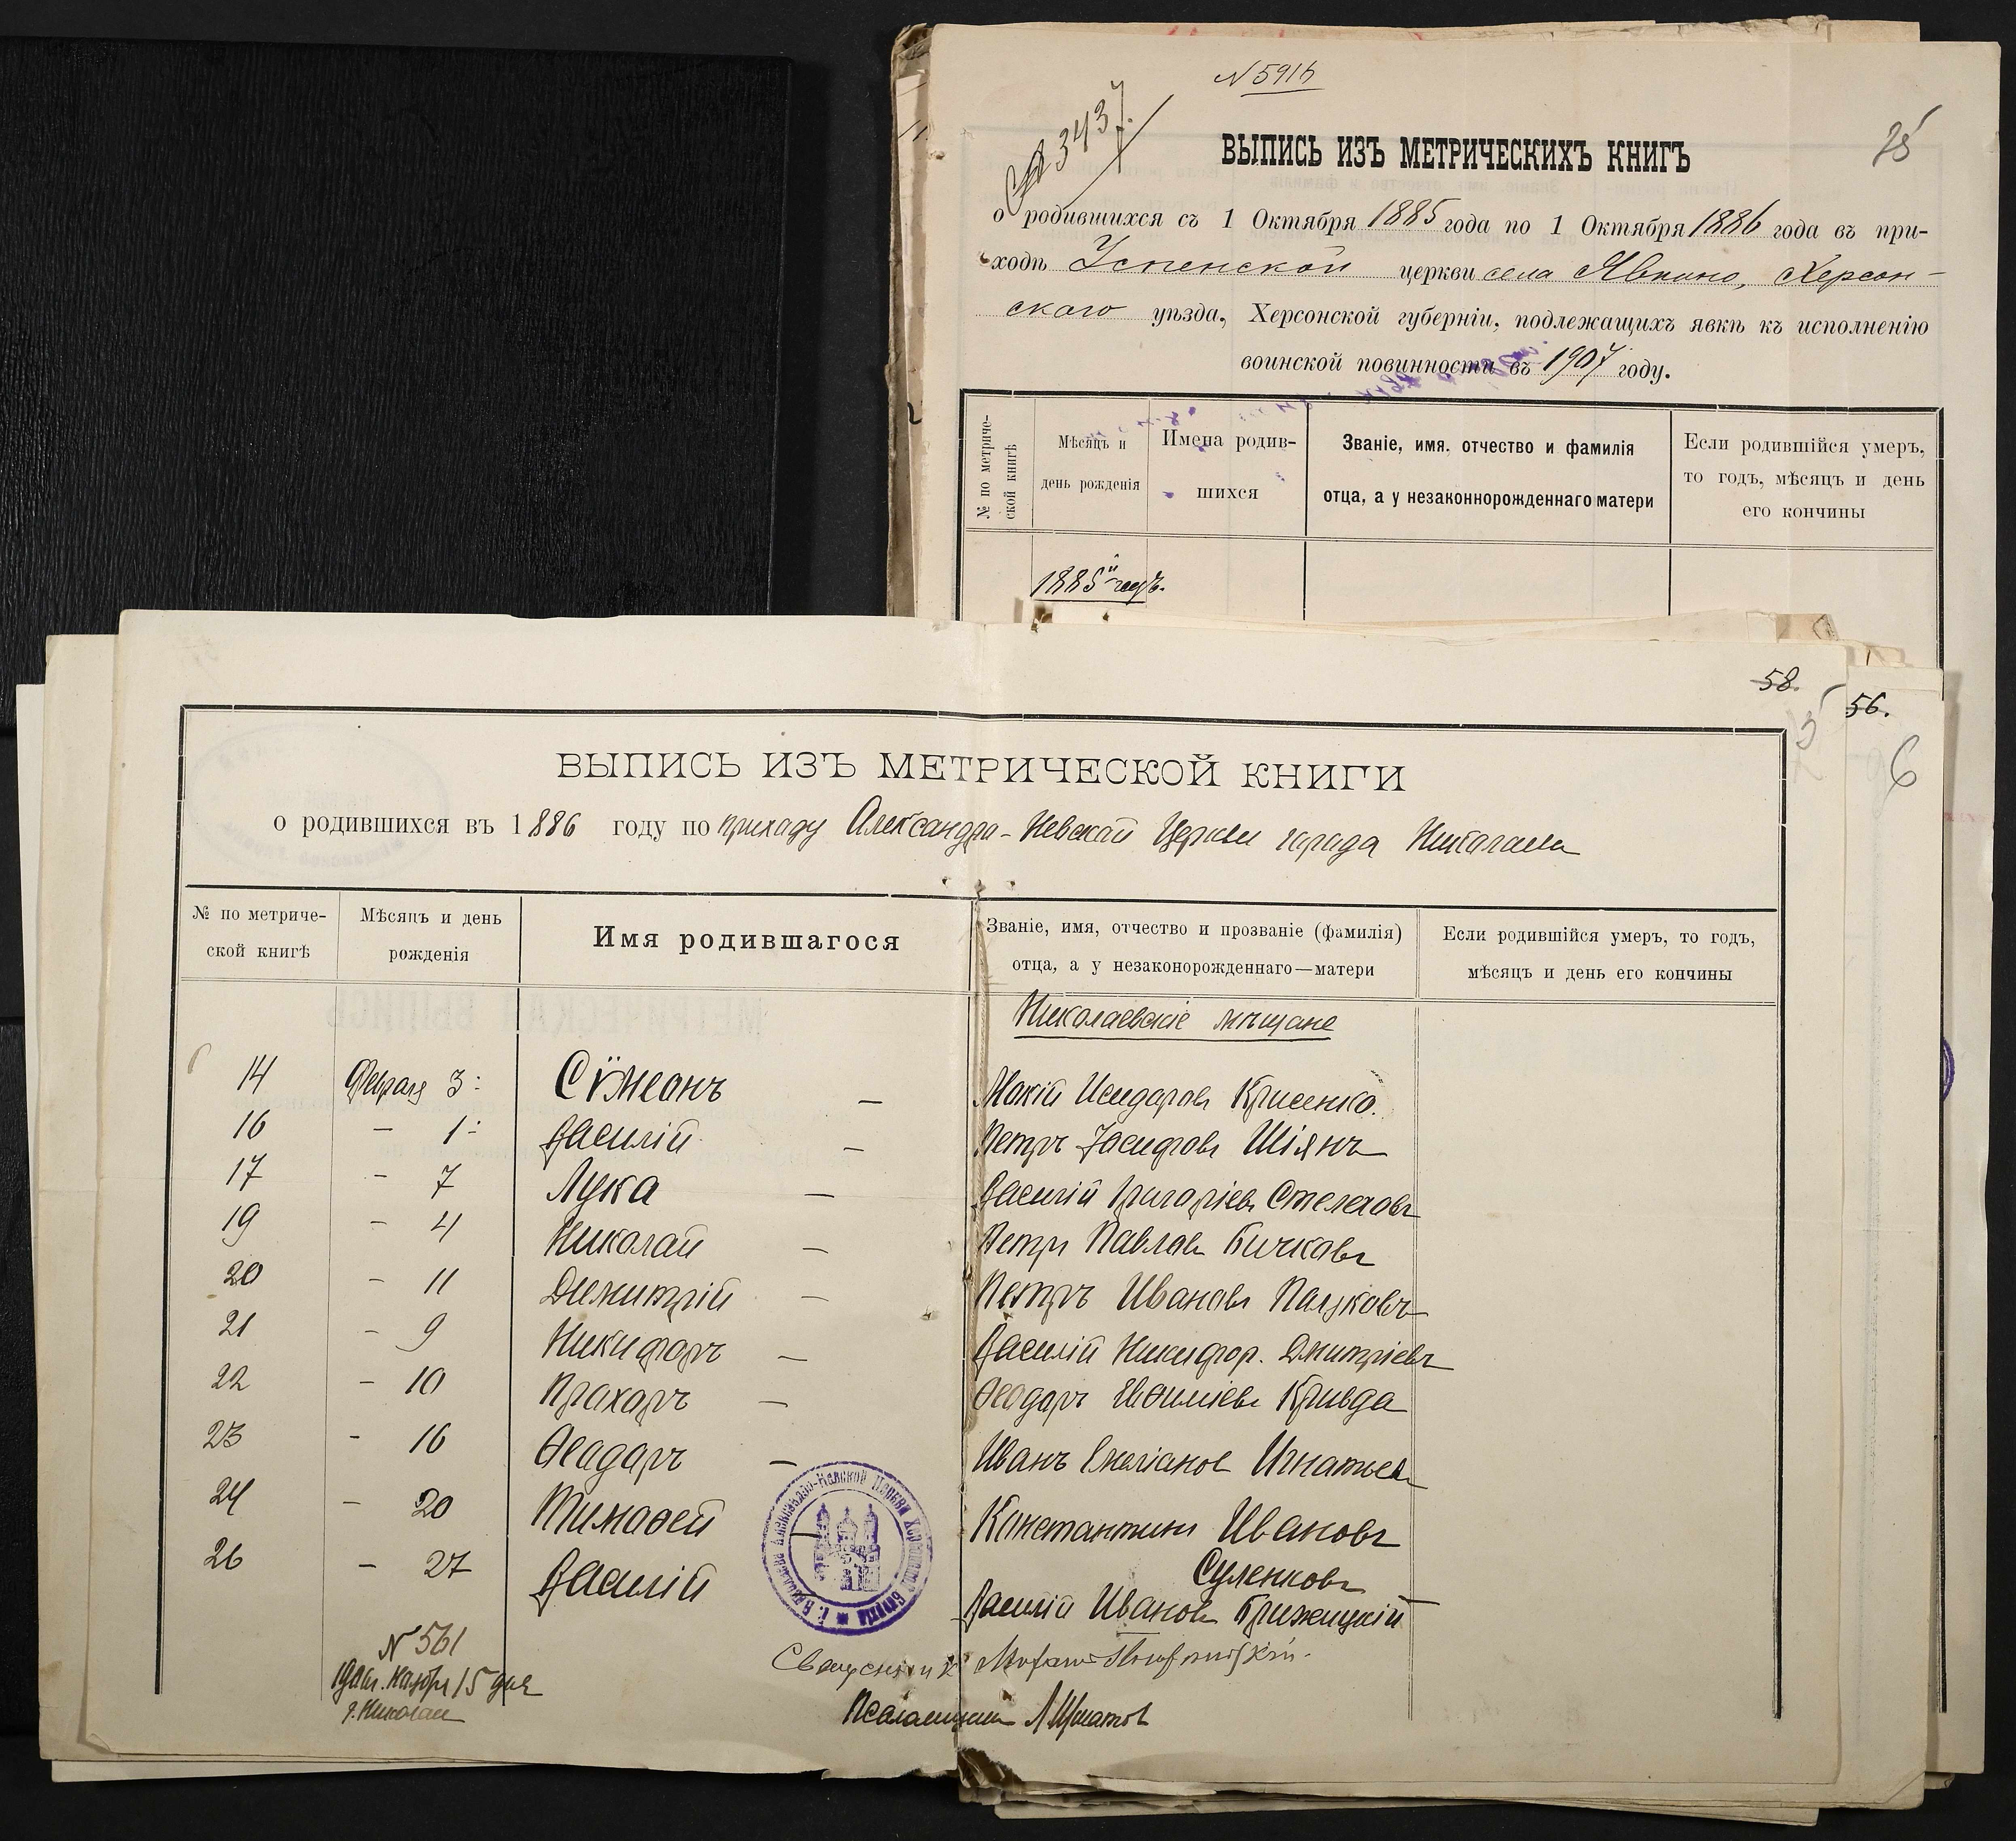 N 5916
№ 3437.
25
ВЫПИСЬ ИЗЪ МЕТРИЧЕСКИХЪ КНИГЪ
о родившихся съ 1 Октября 1885 года по 1 Октября 1886 года въ при-
ходѣ Успенской церкви села Явкино, Херсон-
скаго уѣзда, Херсонской губерніи, подлежащихъ явкѣ къ исполненію
воинской повинности въ 1907 году.
№ по метриче-
ской книгѣ
Мѣсяцъ и
день рожденія
Имена родив-
шихся
Званіе, имя, отчество и фамилія
отца, а у незаконнорожденнаго матери
Если родившійся умеръ,
то годъ, мѣсяцъ и день
его кончины
1885й годъ.
58.
56.
6
ВЫПИСЬ ИЗЪ МЕТРИЧЕСКОЙ КНИГИ
о родившихся въ 1886 году по приходу Александро-Невской Церкви города Николаева
№ по метриче-
ской книгѣ
Мѣсяцъ и день
рожденія
Имя родившагося
Званіе, имя, отчество и прозваніе (фамилія)
отца, а у незаконорожденнаго—матери
Если родившійся умеръ, то годъ,
мѣсяцъ и день его кончины
Николаевскіе мѣщане
14 Февраля 3: Сѵмеонъ — Мокій Исидоровъ Крисенко.
16 — 1: Василій — Петръ Іосифовъ Шіянъ
17 — 7 Лука — Василій Григоріевъ Стелеховъ
19 — 4 Николай — Петръ Павловъ Бичковъ
20 — 11 Димитрій — Петръ Ивановъ Палуковъ
21 — 9 Никифоръ — Василій Никифор. Дмитріевъ
22 — 10 Прохоръ — Ѳеодоръ Евѳиміевъ Кривда
23 - 16 Ѳеодоръ — Иванъ Емеліановъ Игнатьев
24 — 20 Тимоѳей — Константинъ Ивановъ
Суленковъ
26 — 27 Василій Василій Ивановъ Брижицкій
N 561
1906г. Ноября 15 дня
г. Николаев
Священникъ
Псаломщикъ